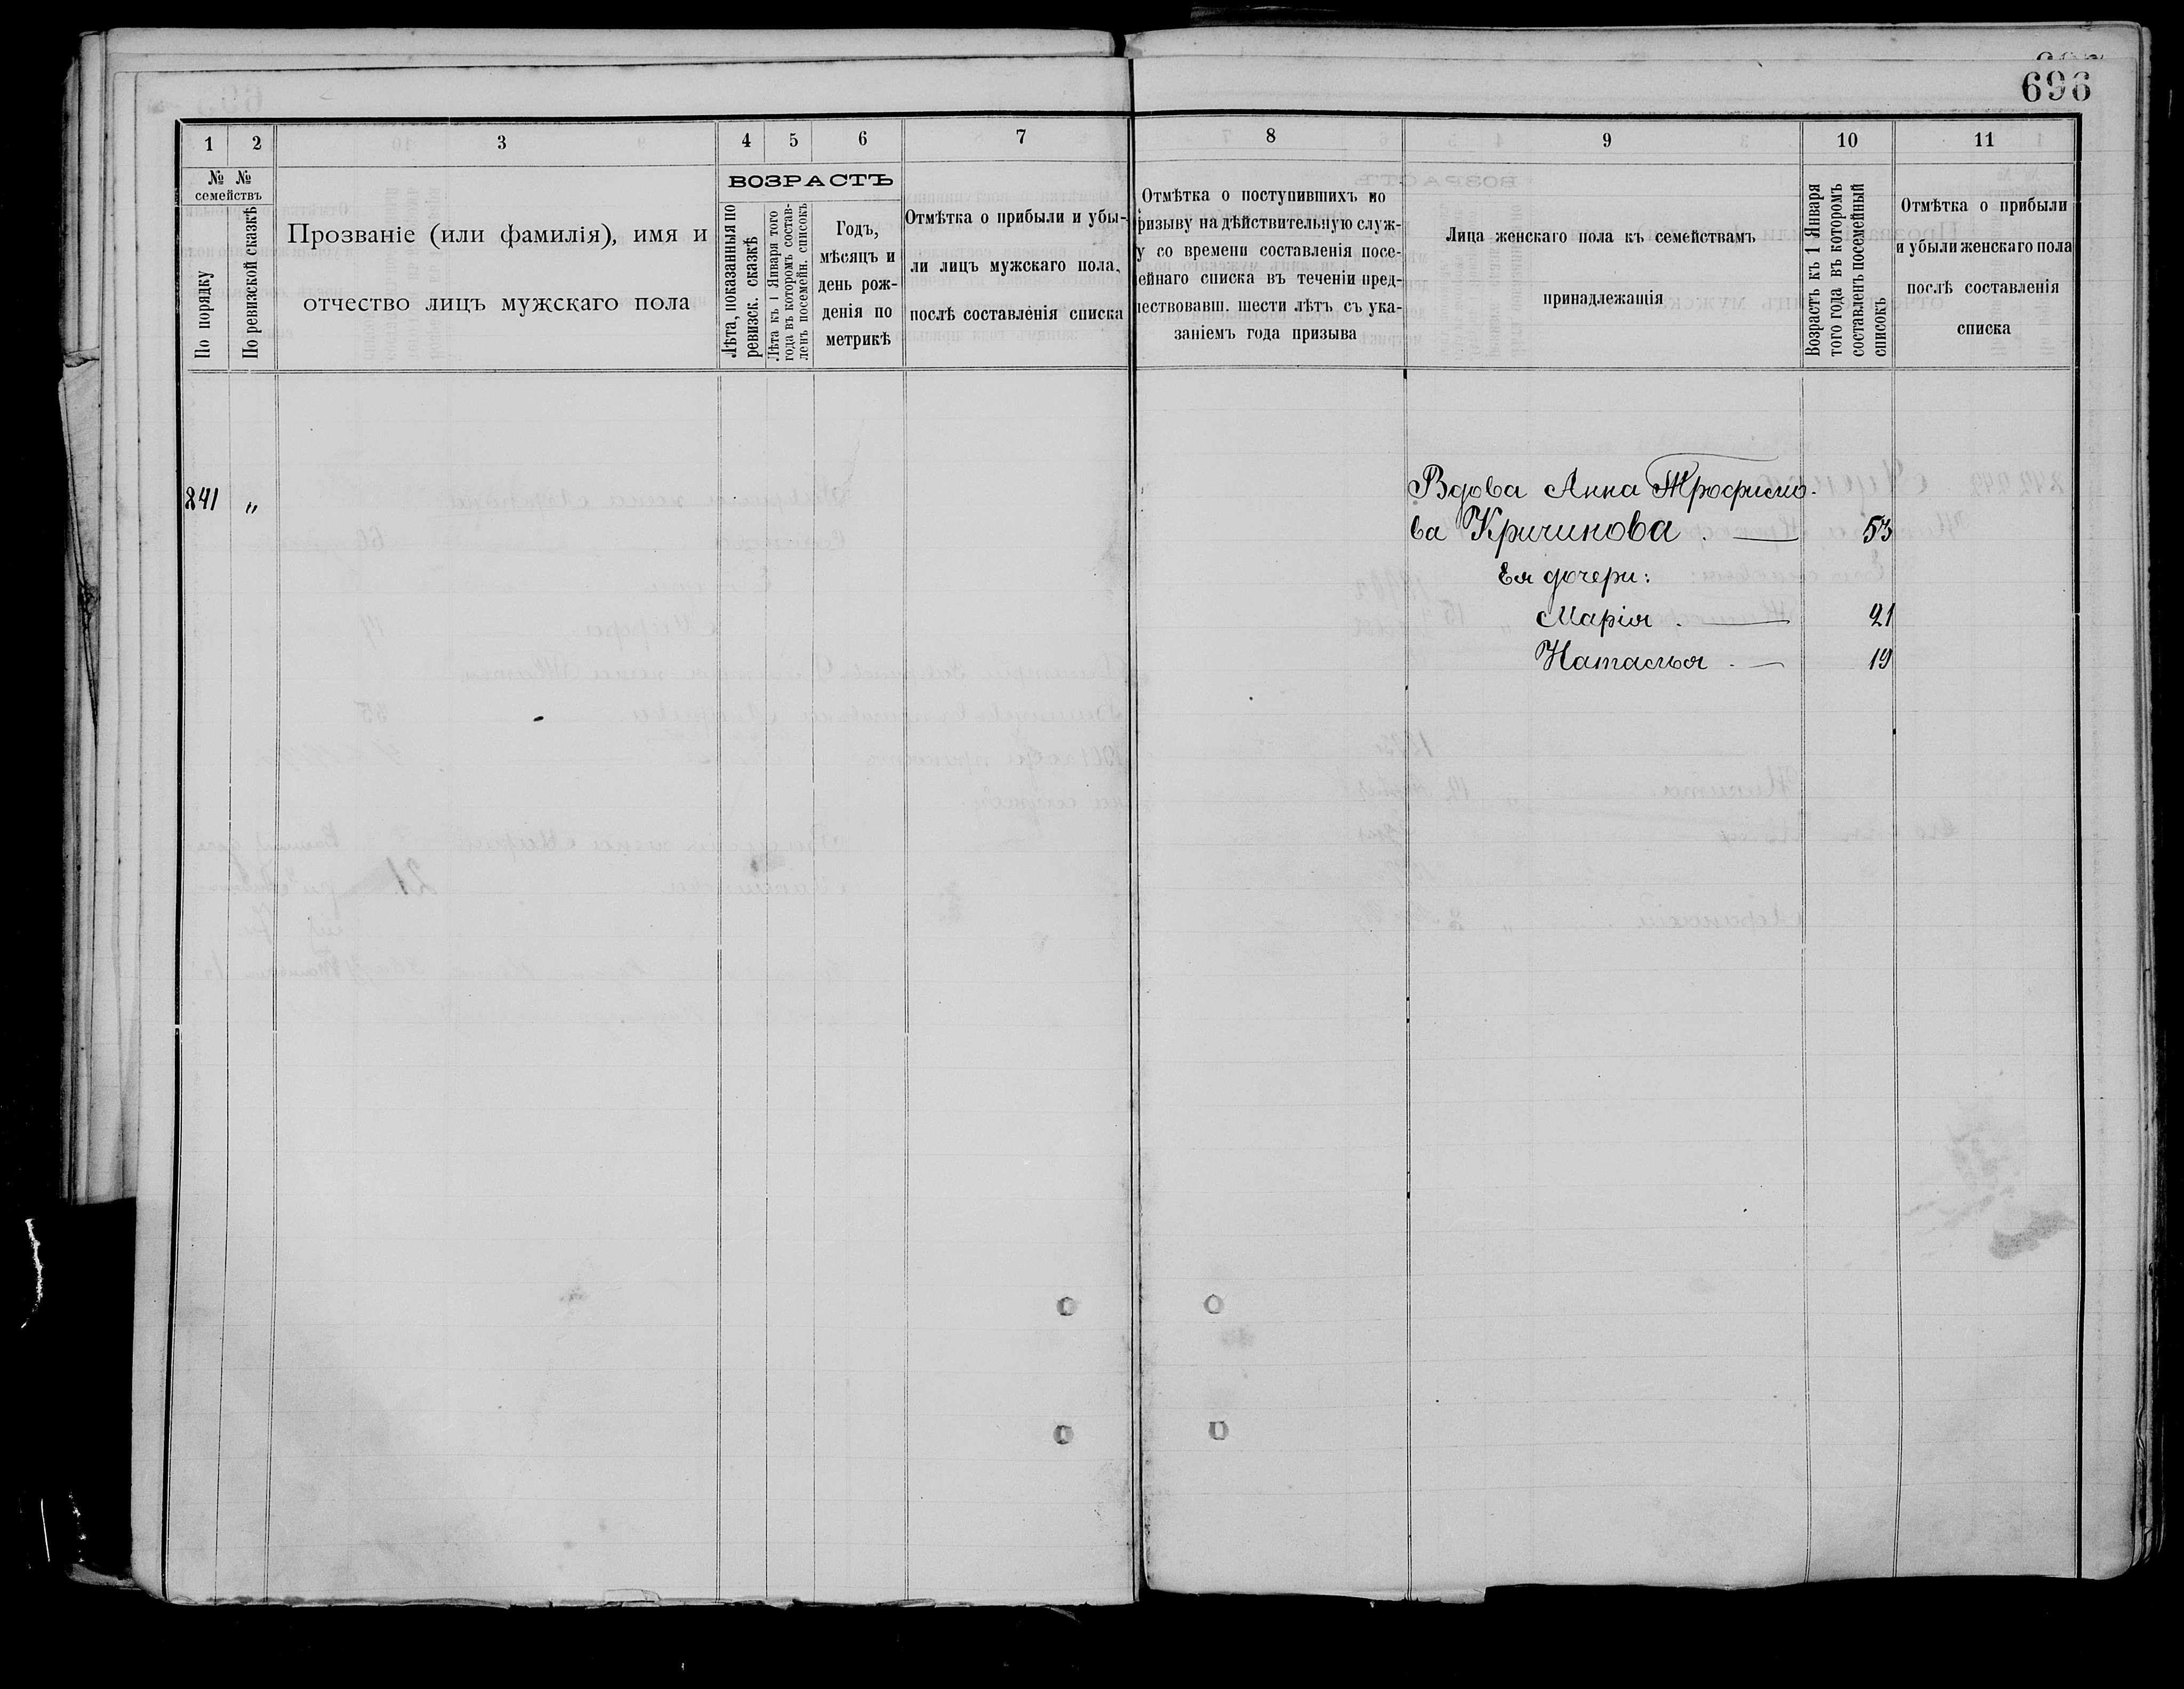 696
1 2 3 4 5 6 7 8 9 10 11
№ №
семействъ
По порядку
По ревизской сказкѣ
Прозваніе (или фамилія), имя и
отчество лицъ мужскаго пола
ВОЗРАСТЪ
Лѣта, показанныя по
ревизск. сказкѣ
Лѣта къ 1 Января того
года въ которомъ состав-
ленъ посемейн. списокъ
Годъ,
мѣсяцъ и
день рож-
денія по
метрикѣ
Отмѣтка о прибыли и убы-
ли лицъ мужскаго пола,
послѣ составленія списка
Отмѣтка о поступившихъ по
призыву на дѣйствительную служ-
у со времени составленія посе-
ейнаго списка въ теченіи пред-
ествовавш. шести лѣтъ съ ука-
заніемъ года призыва
Лица женскаго пола къ семействамъ
принадлежащія
Возрастъ къ 1 Января
того года въ которомъ
составленъ посемейный
списокъ
Отмѣтка о прибыли
и убыли женскаго пола
послѣ составленія
списка
841 „ Вдова Анна Трофимо-
ва Кричинова . — 53
Ея дочери:
Марія . — 21
Наталья . — 19